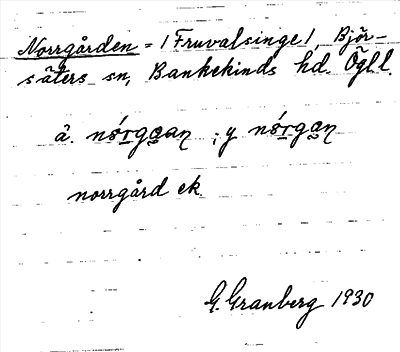 Norrgården = / Fruvalsinge /, Björ-
säters sn, Bankekinds hd. Ögll.
ä. nórgɑan ; y nórgɑn
norrgård ek.
G. Granberg 1930